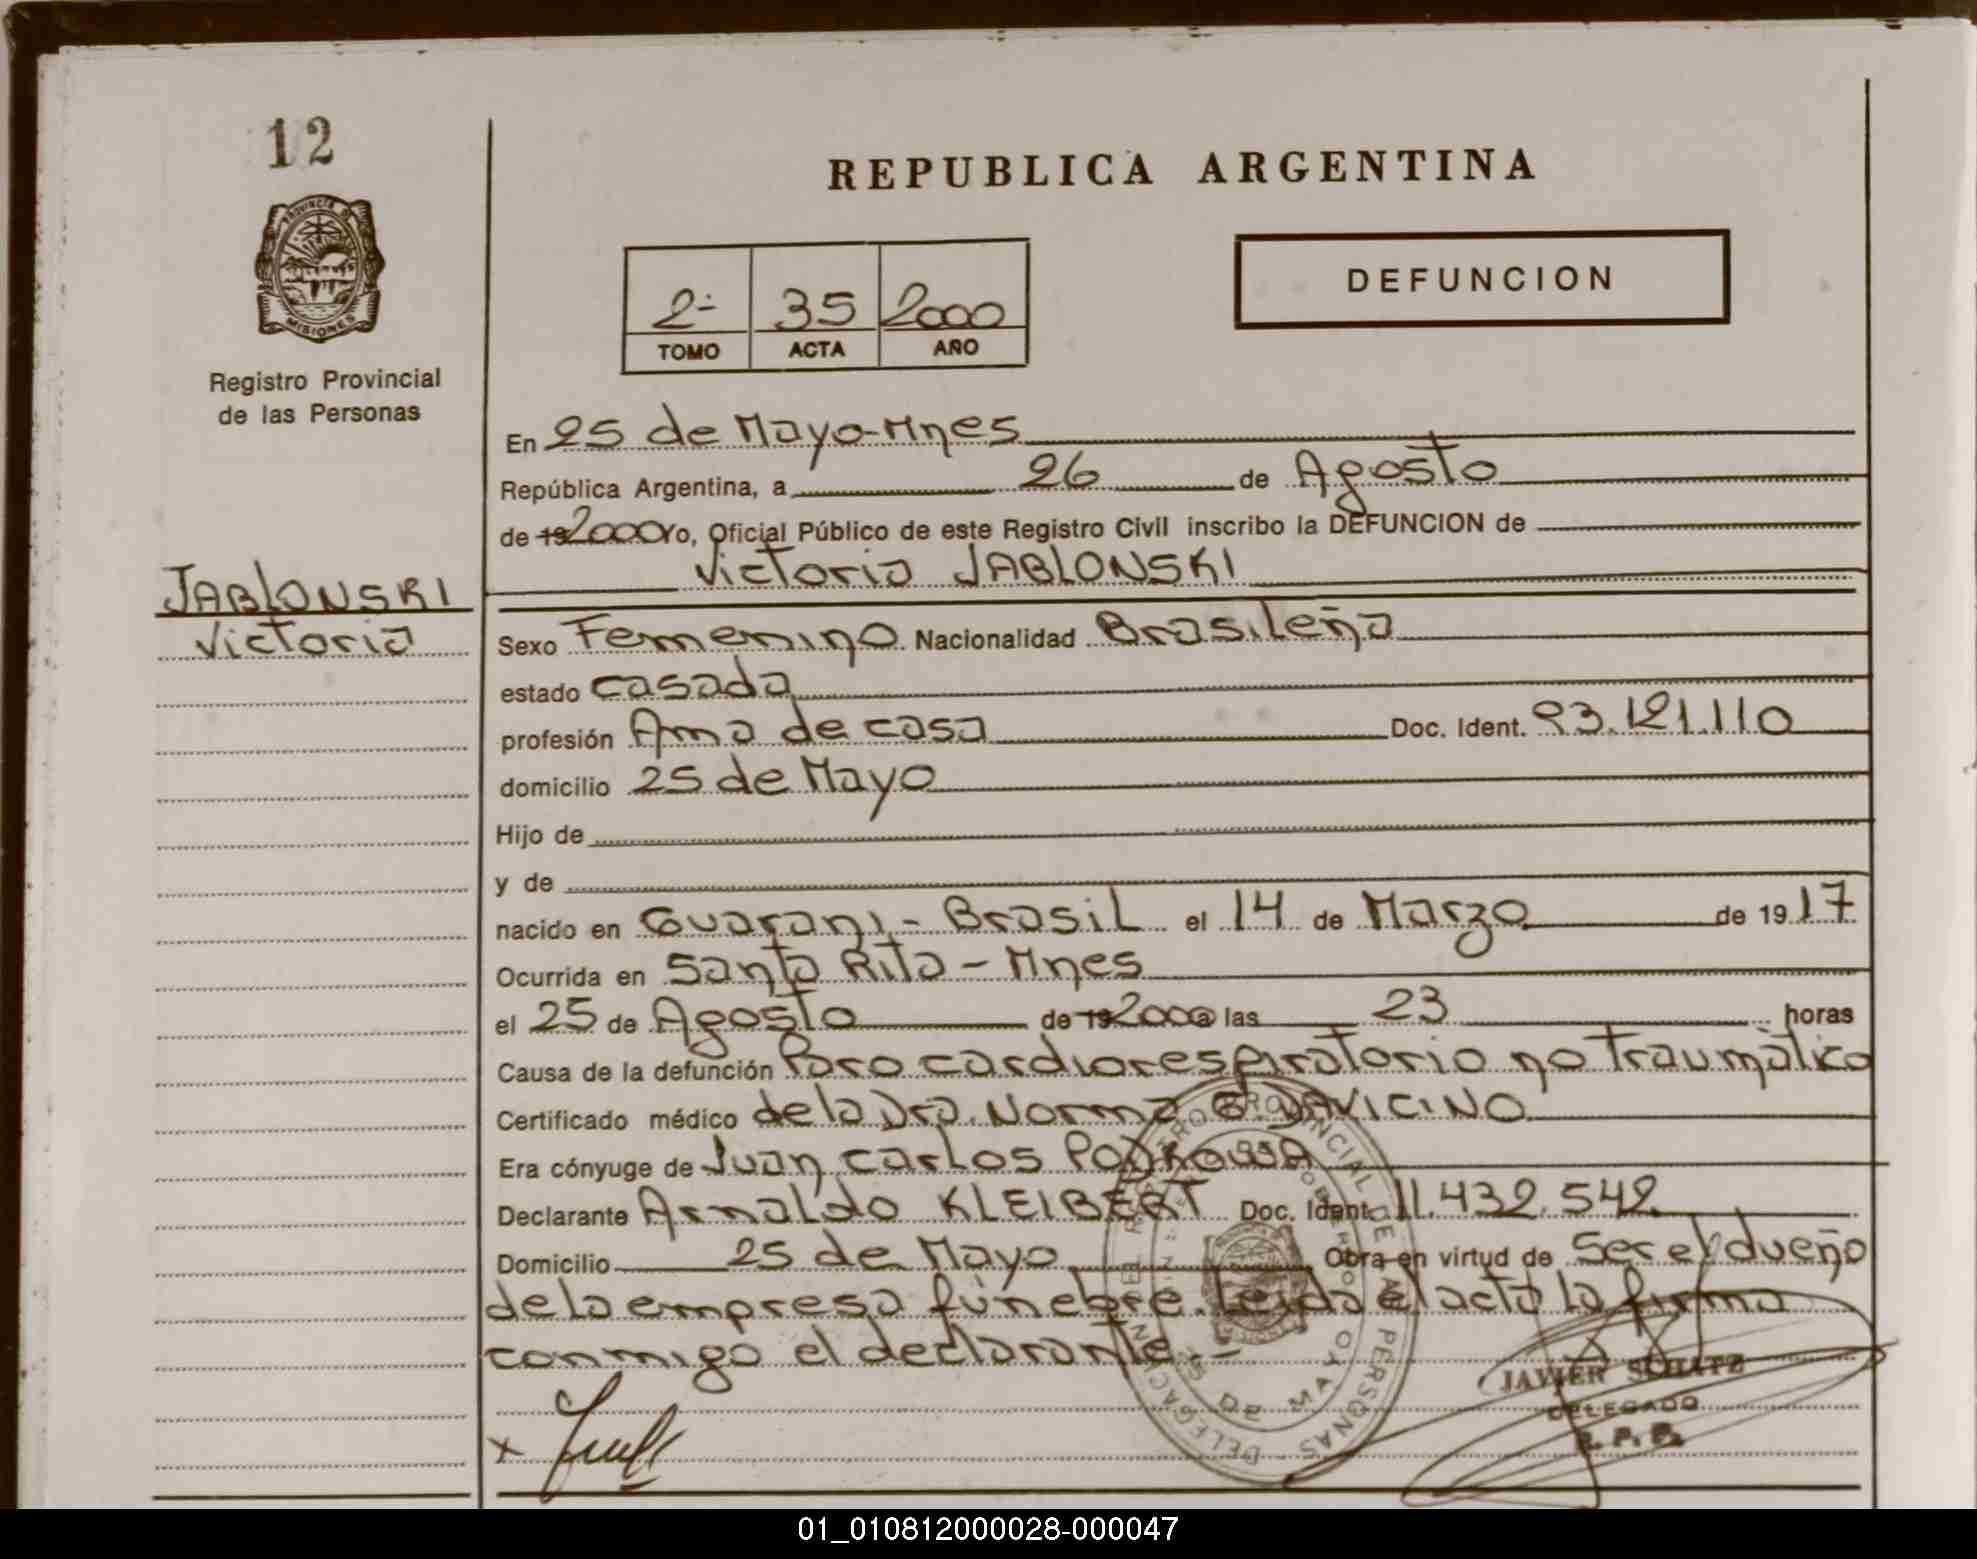 12
REPUBLICA ARGENTINA
PROVINCIA DE
MISIONES
Registro Provincial
de las Personas
2- 35 2000
TOMO ACTA AÑO
DEFUNCION
En 25 de Mayo-Mnes
República Argentina, a 26 de Agosto
de 19 2000 Yo, Oficial Público de este Registro Civil inscribo la DEFUNCION de
Victoria JABLONSKI
JABLONSKI
Victoria
Sexo Femenino Nacionalidad Brasileña
estado casada
profesión Ama de casa Doc. Ident. 93.121.110
domicilio 25 de Mayo
Hijo de
y de
nacido en Guarani - Brasil el 14 de Marzo de 1917
Ocurrida en Santa Rita - Mnes
el 25 de Agosto de 19 2000 a las 23 horas
Causa de la defunción Paro cardiorespiratorio no traumático
Certificado médico de la Dra. Norma DAVICINO
Era cónyuge de Juan Carlos
Declarante Arnaldo KLEIBERT Doc. Ident. 11.432.542
Domicilio 25 de Mayo Obra en virtud de ser el dueño
de la empresa fúnebre. Leida el acta la firma
conmigo el declarante.-
JAVIER SCHATZ
DELEGADO
R. P. P.
01_010812000028-000047